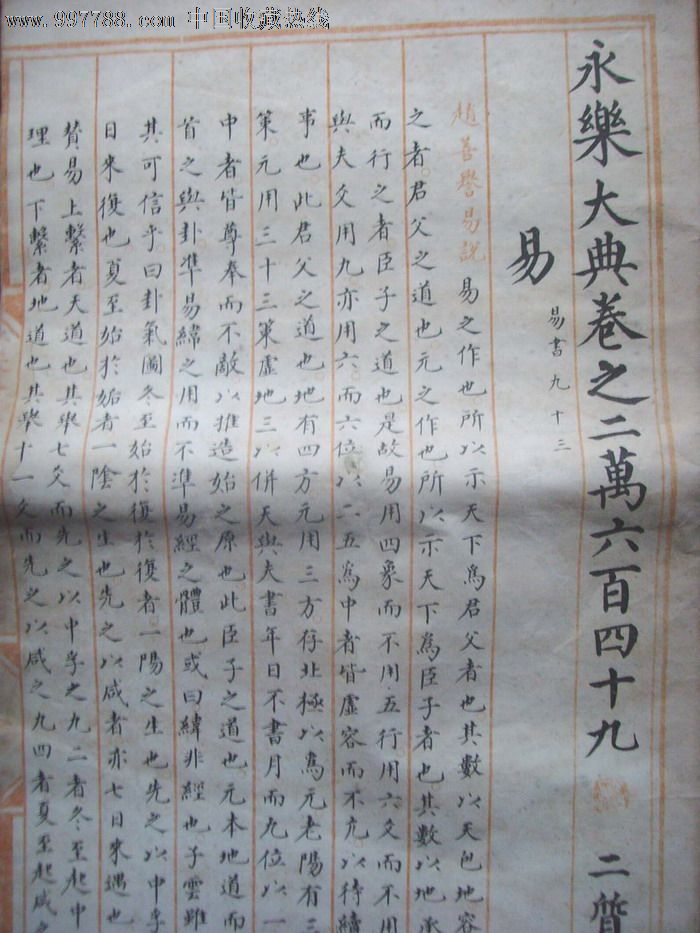 www.997788.com 中国收藏热线
永樂大典卷之二萬六百四十九 二質
易 易書九十三
趙善譽易說 易之作也所以示天下爲君父者也其數以天包地容
之者君父之道也元之作也所以示天下爲臣子者也其數以地承
而行之者臣子之道也是故易用四象而不用五行用六爻而不用
與夫爻用九亦用六而六位以二五爲中者皆虛容而不充以待續
事也此君父之道也地有四方元用三方存北極以爲元老陽有三
策元用三十三策虛地三以併天與夫書年日不書月而九位以一
中者皆尊奉而不敵以推造始之原也此臣子之道也元本地道而
首之與卦準易緯之用而不準易經之體也或曰緯非經也子雲雖
其可信乎曰卦氣圖冬至始於復於復者一陽之生也先之以中孚
日來復也夏至始於姤者一陰之生也先之以咸者亦七日來遇也
賛易上繫者天道也其舉七爻而先之以中孚之九二者冬至起中
理也下繫者地道也其舉十一爻而先之以咸之九四者夏至起咸之